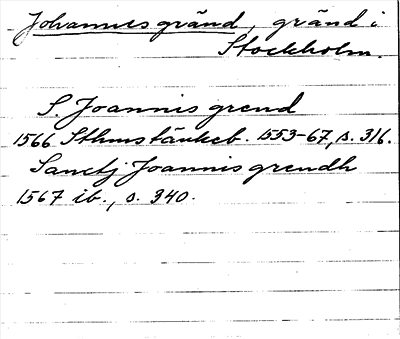 Johannesgränd, gränd i
Stockholm.
S. Joannis grend
1566 Sthms tänkeb. 1553-67, s. 316.
Sanctj Joannis grendh
1567 ib., s. 340.